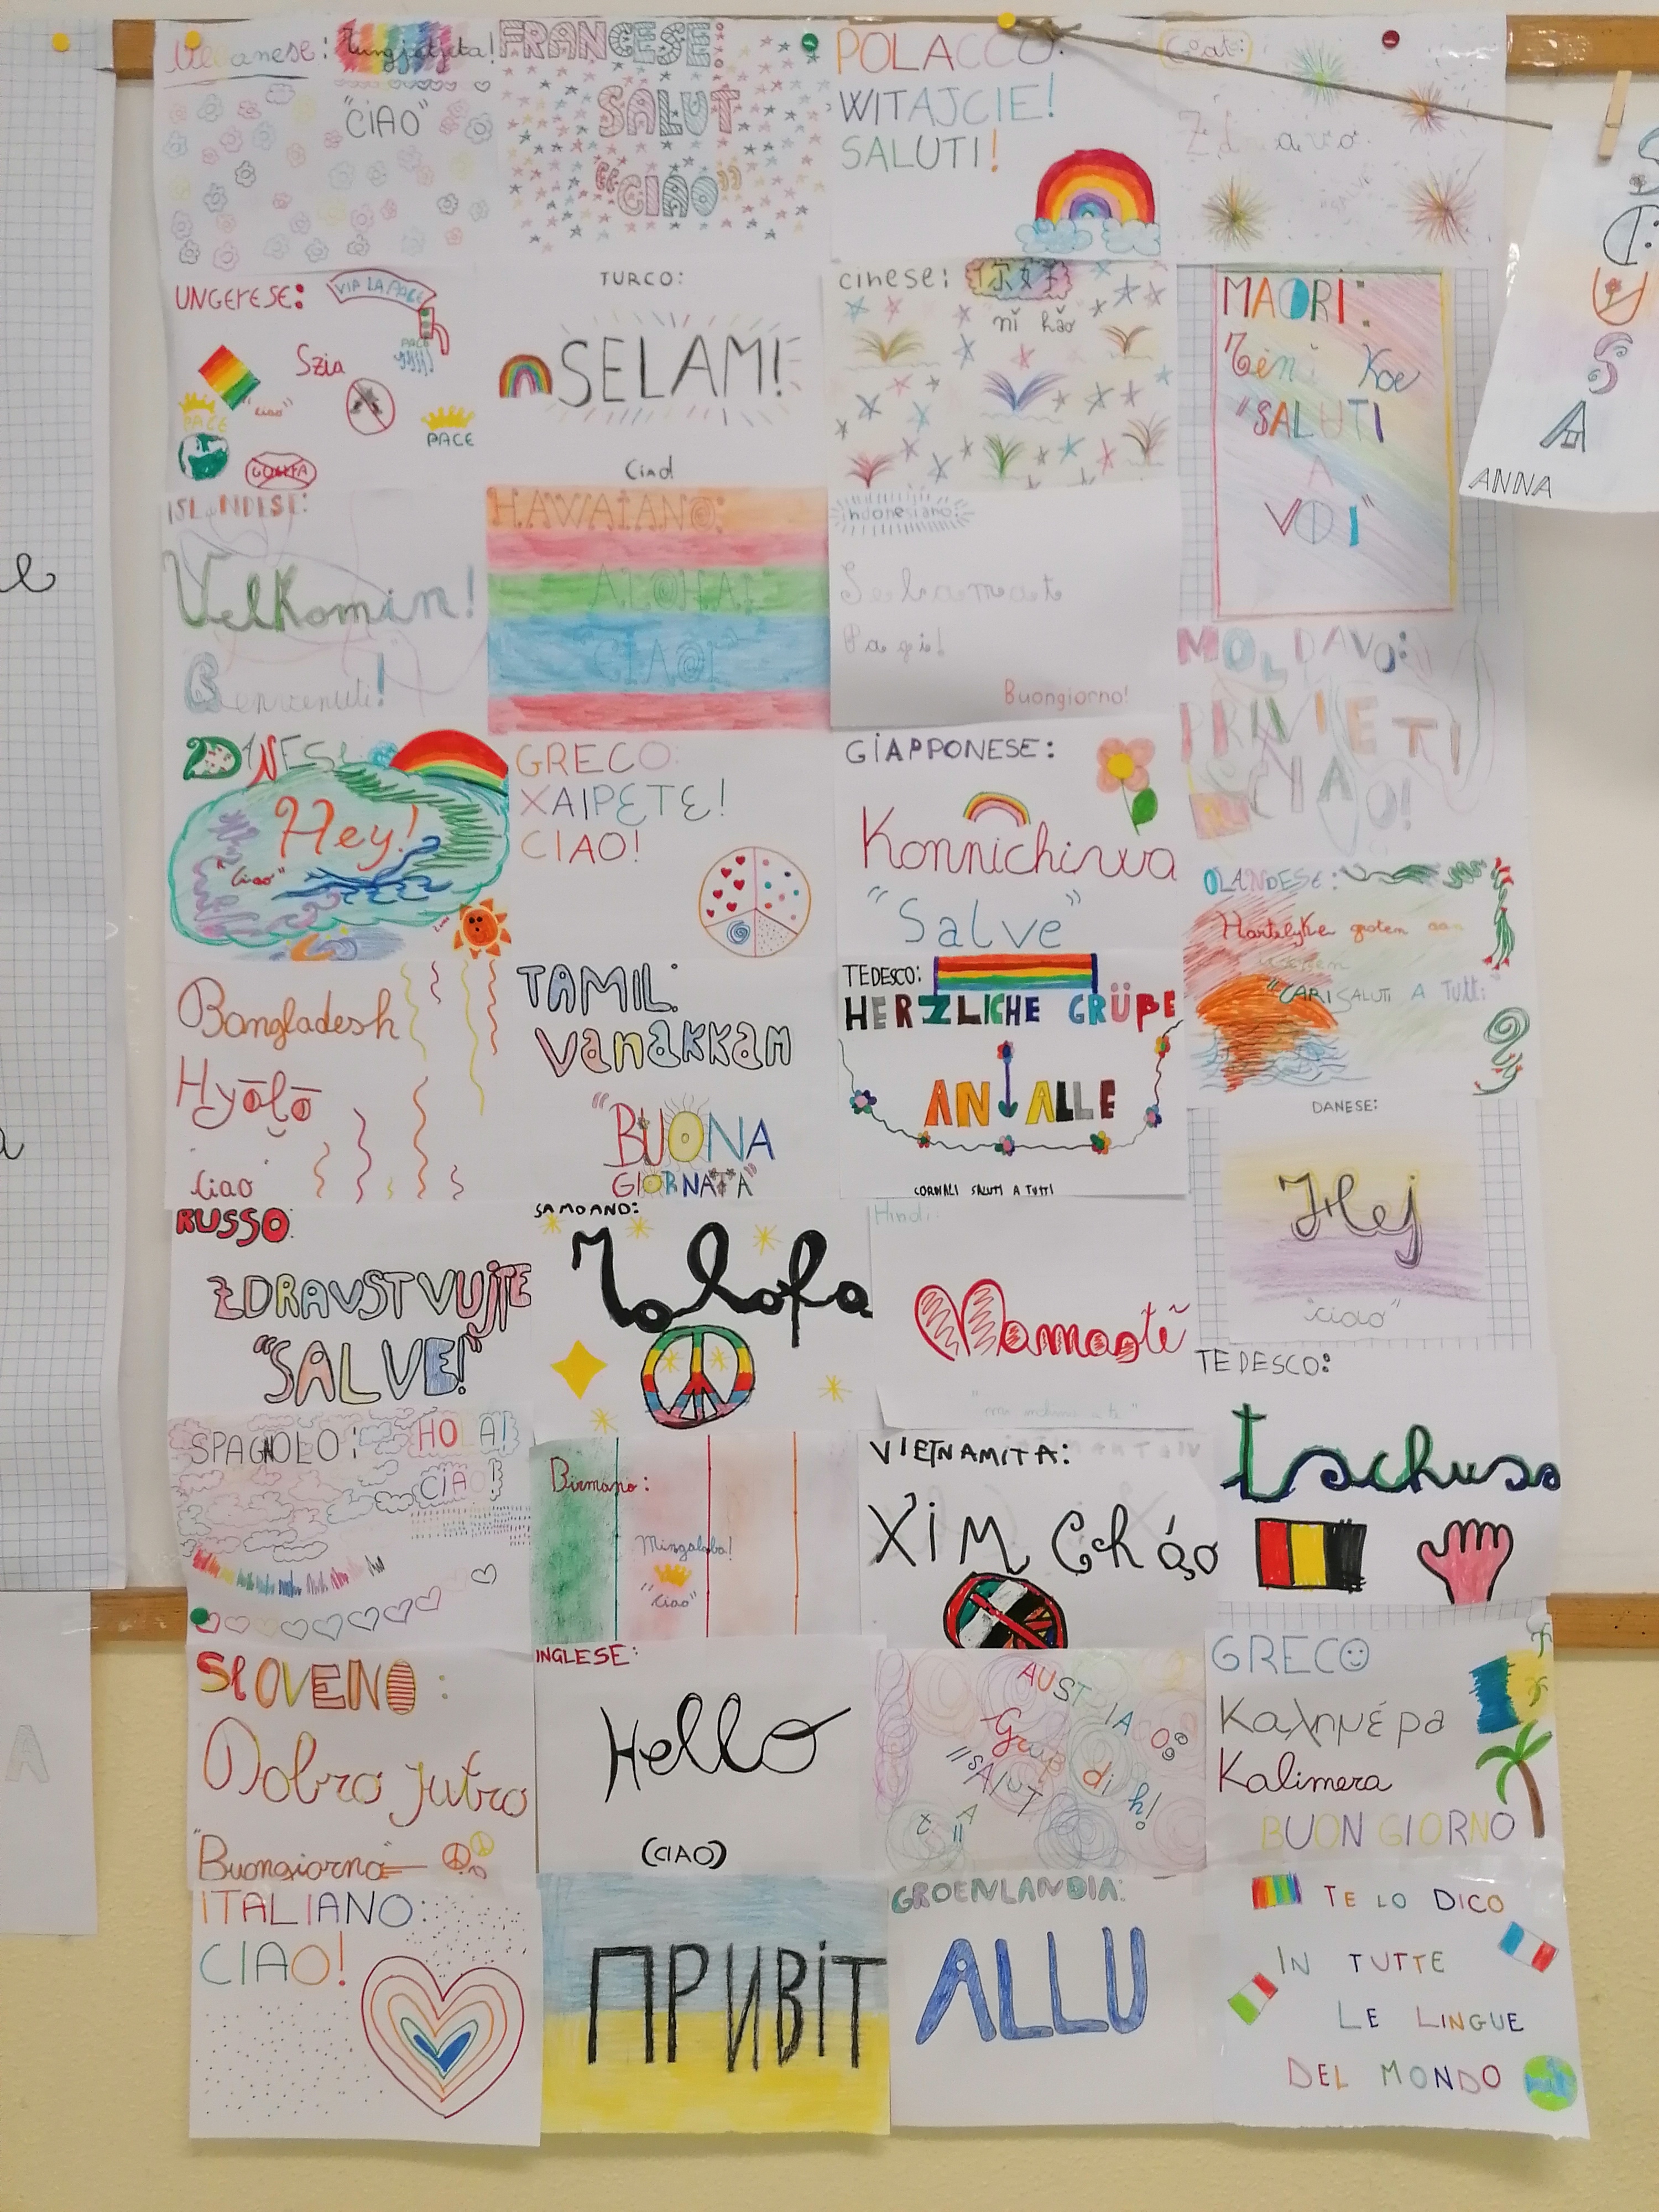 Tungjatjeta!
"CIAO"
FRANCESE:
SALUT
"CIAO"
POLACCO:
WITAJCIE!
SALUTI!
UNGERESE:
VIA LA PACE
PACE
Szia
"Ciao"
PACE
PACE
TURCO:
SELAM!
Ciao!
cinese: 你好
nǐ hǎo
MAORI:
Teni Koe
"SALUTI
A
VOI"
ANNA
Velkomin!
Benvenuti!
HAWAIANO:
ALOHA!
"CIAO!"
Indonesiano:
Selramat
Pagi!
Buongiorno!
MOLDAVO:
PRIVIET!
CIAO!
DANESE
Hey!
"Ciao"
GRECO:
XAIPETE!
CIAO!
GIAPPONESE:
Konnichiwa
"Salve"
OLANDESE:
Hartelijke groten aan
"CARI SALUTI A TUTTI
Bangladesh
Hyālō
ciao
TAMIL:
vanakkam
"BUONA
GIORNATA"
TEDESCO:
HERZLICHE GRÜßE
AN ALLE
CORDIALI SALUTI A TUTTI
DANESE:
Hej
"ciao"
RUSSO:
ZDRAVSTVUJTE
"SALVE!"
SAMOANO:
Talofa
Hindi:
Namastē
"mi inchino a te"
TEDESCO:
tschuss
SPAGNOLO: HOLA!
CIAO!
Birmano:
Mingalaba!
"Ciao"
VIETNAMITA:
XIM Cháo
SLOVENO:
Dobro jutro
"Buongiorno"
INGLESE:
Hello
(CIAO)
AUSTRIACO
Grup di h!
"SALUT
A
GRECO
Καλημέρα
Kalimera
BUON GIORNO
ITALIANO:
CIAO!
ПРИВІТ
GROENLANDIA:
ALLU
TE LO DICO
IN TUTTE
LE LINGUE
DEL MONDO